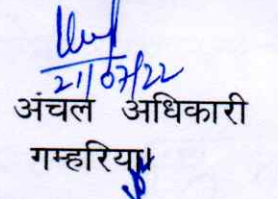 21/07/22
अंचल अधिकारी
गम्हरिया।